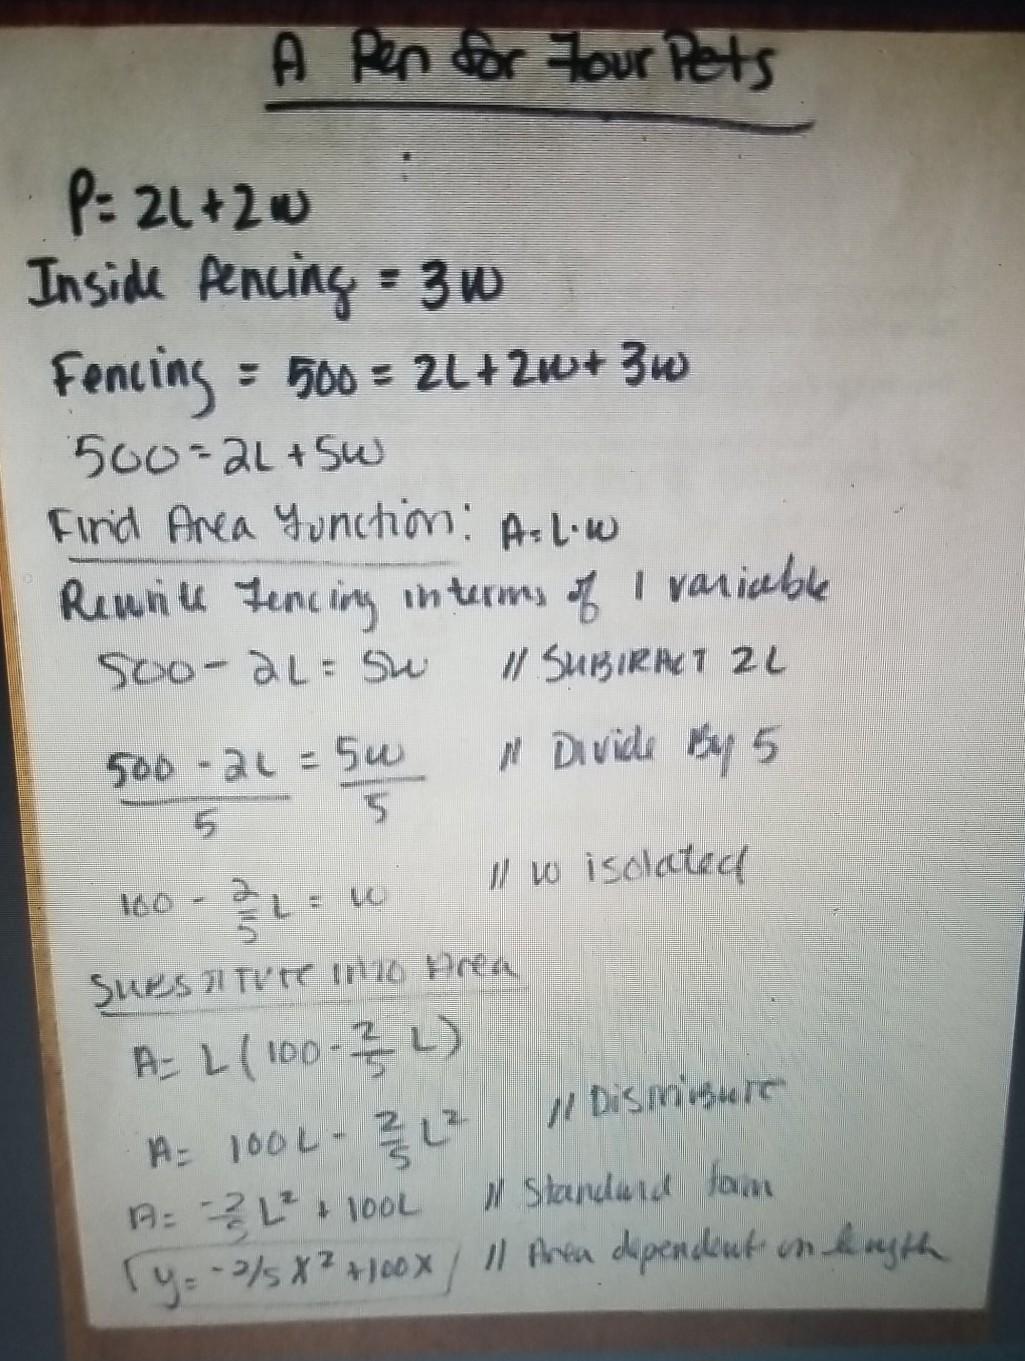 A Pen for Four Pets
P= 2L+2w
Inside fencing = 3w
Fencing = 500 = 2L+2w+3w
500=2L+5w
Find Area function: A=L·w
Rewrite fencing in terms of 1 variable
500-2L=5w // SUBTRACT 2L
500-2L = 5w // Divide By 5
5 5
100 - 2/5 L = w // w isolated
SUBSTITUTE INTO Area
A= L(100-2/5 L)
A= 100L - 2/5 L² // Distribute
A= -2/5 L² + 100L // Standard form
y= -2/5 X² +100X // Area dependent on length